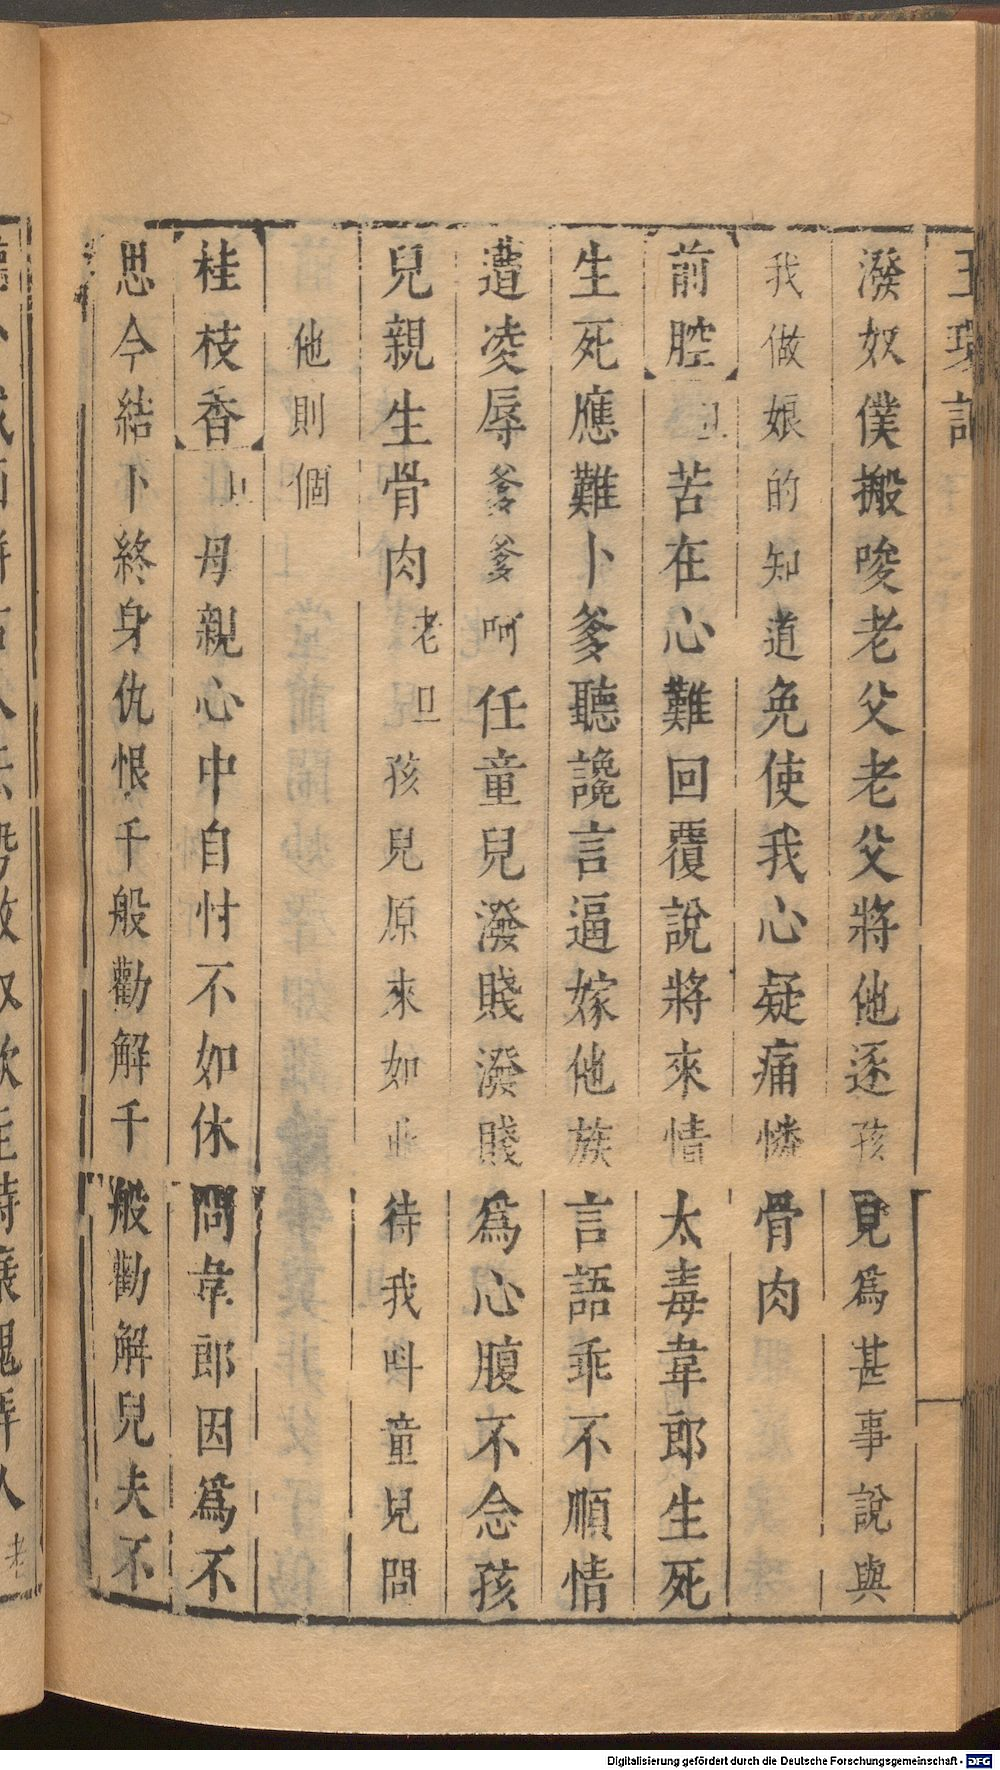 玉環記
潑奴僕搬唆老父老父將他逐孩兒爲甚事說與
我做娘的知道免使我心疑痛憐骨肉
前腔 旦 苦在心難回覆說將來情太毒韋郎生死
生死應難卜爹聽讒言逼嫁他族言語乖不順情
遭凌辱爹爹呵任童兒潑賤潑賤爲心腹不念孩
兒親生骨肉 老旦 孩兒原來如此待我叫童兒問
他則個
桂枝香 旦 母親心中自忖不如休問韋郎因爲不
思今結卜終身仇恨千般勸解千般勸解兒夫不
Digitalisierung gefördert durch die Deutsche Forschungsgemeinschaft - DFG